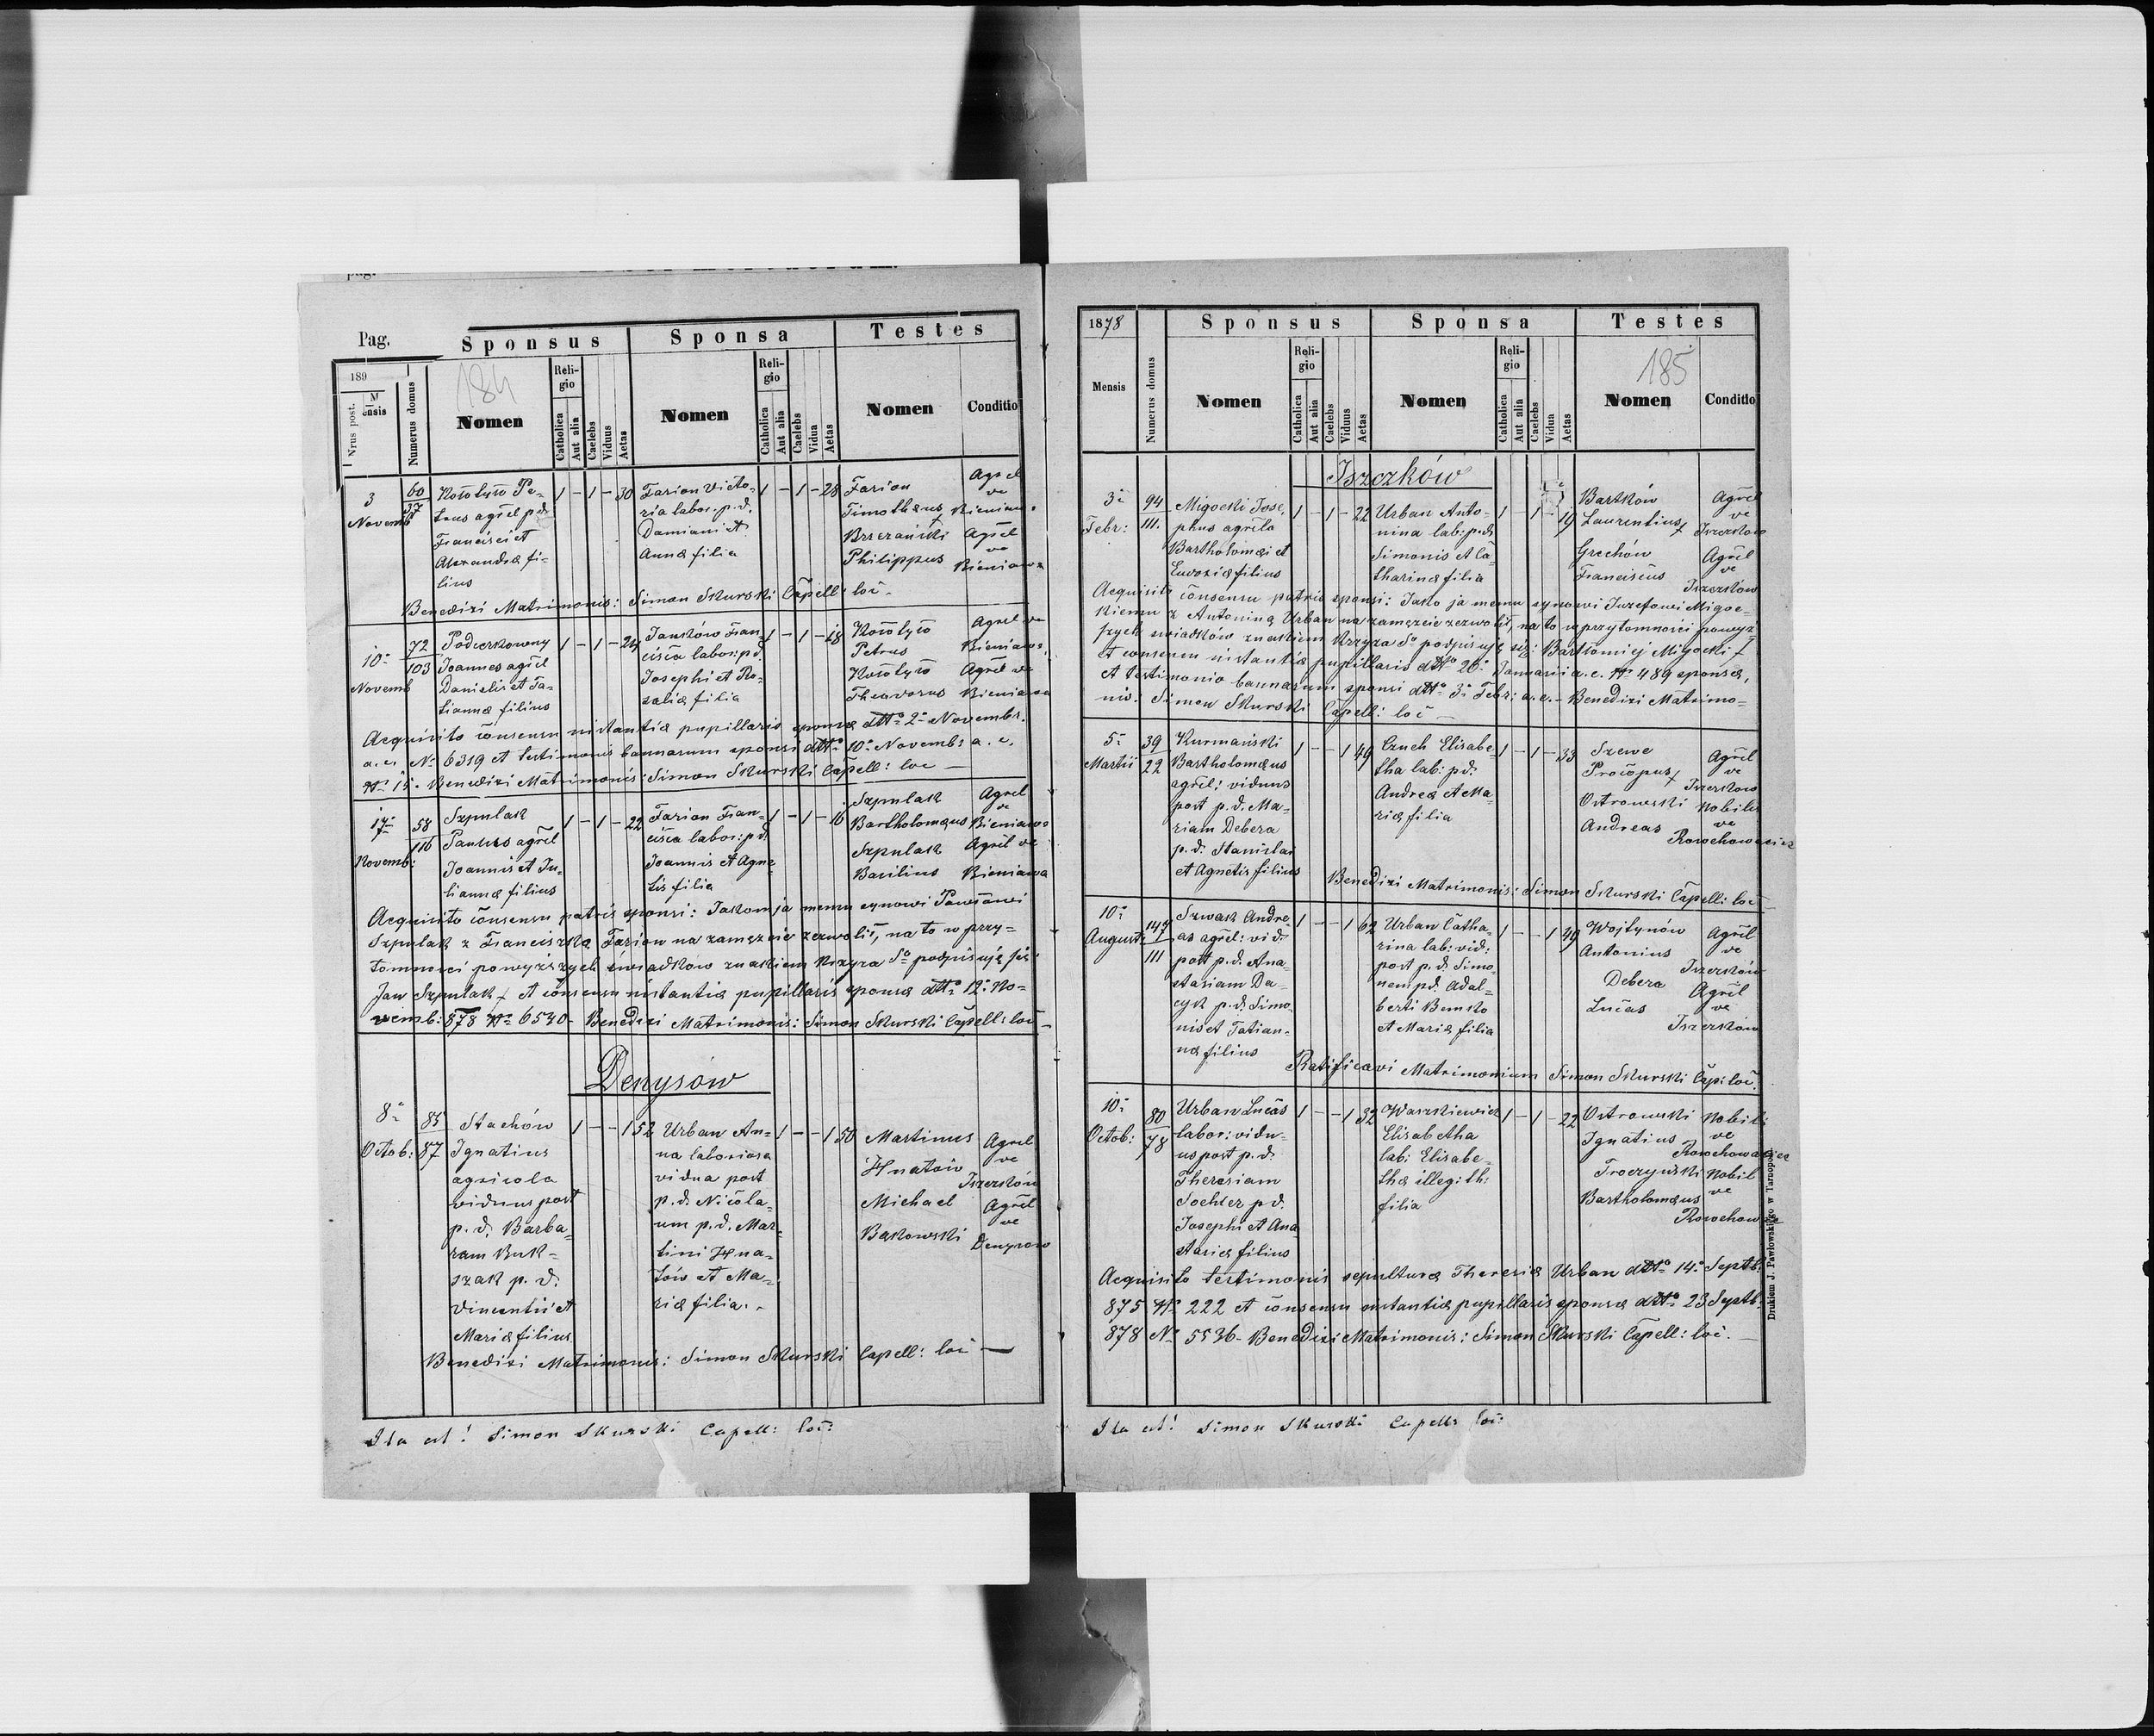 Pag.
Sponsus
Sponsa
Testes
189
Nrus post.
Mensis
Numerus domus
184
Nomen
Religio
Catholica
Aut alia
Caelebs
Viduus
Aetas
Nomen
Religio
Catholica
Aut alia
Caelebs
Vidua
Aetas
Nomen
Conditio
3
Novemb
60
37
Kowtyło Pe-
trus agrel p.d.
Francisci et
Alexandræ fi-
lius
1 – 1 – 30
Farion Victo-
ria labor. p.d.
Damiani et
Annæ filia
1 – 1 – 28
Farion
Timothæus +
Brzezański
Philippus
Agrel
ve
Bieniawa
Agrel
ve
Bieniawa
Benedixi Matrimonis: Simon Skurski Capell: loc.
10
Novemb
72
103
Poderkowny
Joannes agrel
Danielis et Ta-
tiannæ filius
1 – 1 – 24
Janków Fran-
cisca labor: p.d.
Josephi et Ro-
saliæ filia
1 – 1 – 18
Petrus
Theodorus
Agrel ve
Bieniawa
Agrel ve
Bieniawa
Acquisito consensu instantiæ pupillaris sponsæ ddtto 2 Novembr.
a.c. No 6319 et testimonis bannarum sponsi ddtto 10 Novembr a.c.
No 15. Benedixi Matrimonis: Simon Skurski Capell: loc –
17
Novemb:
58
116
Szpulak
Paulus agrel
Joannis et Ju-
liannæ filius
1 – 1 – 22
Farion Fran-
cisca labor: p.d.
Joannis et Agne-
tis filia
1 – 1 – 16
Szpulak
Bartholomæus
Szpulak
Basilius
Agrel
ve
Bieniawa
Agrel ve
Bieniawa
Acquisito consensu patris sponsi: Jakom ja memu synowi Pawłowi
Szpulak z Franciszką Farion na zamęzcie zezwolił, na to w przy-
tomności powyższych świadków znakiem krzyza So podpisuję się
Jan Szpulak + et consensu instantiæ pupillaris sponsæ ddtto 12 No-
vemb: 878 No 6530 – Benedixi Matrimonis: Simon Skurski Capell: loc –
Denysów
8
Octob:
85
87
Stachów
Ignatius
agricola
viduus post
p.d. Barba-
ram Buk-
szak p.d.
Vincentii et
Mariæ filius
1 – – 1 52
Urban An-
na laboriosa
vidua post
p.d. Nicola-
um p.d. Mar-
tini Hna-
tów et Ma-
riæ filia.
1 – – 1 50
Martinus
Hnatów
Michael
Bąkowski
Agrel
ve
Iszczków
Agrel
ve
Denysow
Benedixi Matrimonis: Simon Skurski Capell: loc –
Ita est! Simon Skurski Capell: loc:
1878
Sponsus
Sponsa
Testes
Mensis
Numerus domus
Nomen
Religio
Catholica
Aut alia
Caelebs
Viduus
Aetas
Nomen
Religio
Catholica
Aut alia
Caelebs
Vidua
Aetas
185
Nomen
Conditio
Iszczków
3
Febr:
94
111.
Migocki Jose-
phus agrela
Bartholomæi et
Eudoxiæ filius
1 – 1 – 22
Urban Anto-
nina lab: p.d.
Simonis et Ca-
tharinæ filia
1 – 1 – 19
Bartków
Laurentius +
Grechów
Franciscus
Agrel
ve
Iszczków
Agrel
ve
Iszczków
Acquisito consensu patris sponsi: Jako ja memu synowi Juzefowi Migoc-
kiemu z Antoniną Urban na zamęzcie zezwolił, na to w przytomności powyż-
szych swiadków znakiem krzyza So podpisuję się: Bartłomiej Migocki +
et consensu instantiæ pupillaris ddtto 26 Januarii a.c. No 489 sponsæ,
et testimonio bannarum sponsi ddtto 3 Febr: a.c. – Benedixi Matrimo-
nis. Simon Skurski Capell: loc –
5
Martii
39
22
Kurmański
Bartholomæus
agrel: viduus
post p.d. Ma-
riam Debera
p.d. Stanislai
et Agnetis filius
1 – – 1 49
Czuch Elisabe-
tha lab: p.d.
Andreæ et Ma-
riæ filia
1 – 1 – 33
Szewc
Procopus +
Ostrowski
Andreas
Agrel
ve
Iszczkow
Nobilis
ve
Benedixi Matrimonis: Simon Skurski Capell: loc –
10
August:
147
111
Szwak Andre
as agrel: vid:
post p.d. Ana-
stasiam Da-
cyk p.d. Simo-
nis et Tatian-
næ filius
1 – – 1 62
Urban Catha-
rina lab: vid:
post p.d. Simo-
nem p.d. Adal-
berti Bunsko
et Mariæ filia
1 – – 1 49
Wojtynów
Antonius
Debera
Lucas
Agrel
ve
Iszczków
Agrel
ve
Iszczków
Ratificavi Matrimonium Simon Skurski Cap: loc.
10
Octob:
80
78
Urban Lucas
labor: vidu-
us post p.d.
Theresiam
Sochler p.d.
Josephi et Ana-
stasiæ filius
1 – – 1 32
Waszkiewicz
Elisabetha
lab: Elisabe-
thæ illeg: th:
filia
1 – 1 – 22
Ostrowski
Ignatius
Troczyński
Bartholomæus
Nobilis
ve
Nobil
ve
Acquisito testimonis sepulturæ Theresiæ Urban ddtto 14 Septb:
875 No 222 et consensu instantiæ pupillaris sponsæ ddtto 23 Septb:
878 No 5536 – Benedixi Matrimonis: Simon Skurski Capell: loc. –
Ita est! Simon Skurski Capell: loc:
Drukiem J. Pawłowskiego w Tarnopolu